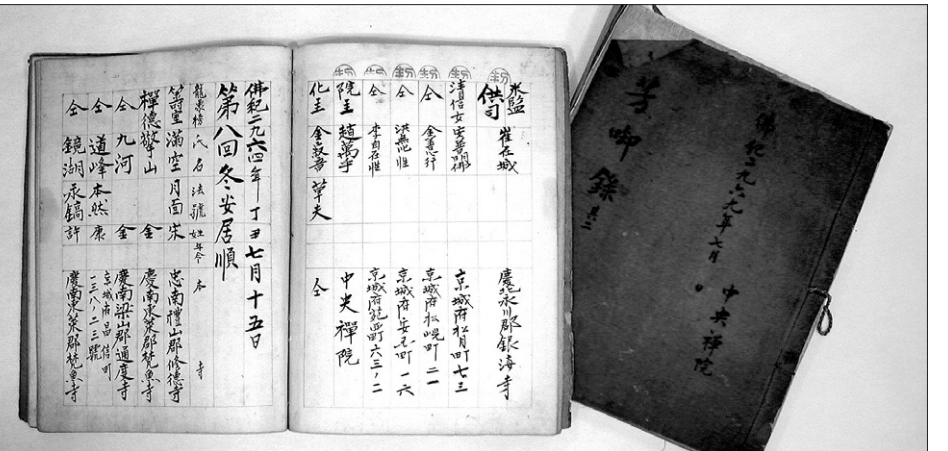 中央禪院
佛紀二九六九年七月 日
芳啣錄 其二
米監 崔在城 慶北永川郡銀海寺
供司
清信女 安普開 京城府松月町七三
仝 金善行 京城府松峴町二一
仝 洪無性 京城府安國町一六
仝 李自在性 京城府苑西町六三ノ二
院主 趙萬乎 中央禪院
化主 金寂音 草夫 仝
佛紀二九六四年 丁丑七月十五日
第八回冬安居順
龍象榜 氏名 法號 姓 年令 本寺
籌室 滿空 月面 宋 忠南禮山郡修德寺
禪德 擎山 金 慶南東萊郡梵魚寺
仝 九河 金 慶南梁山郡通度寺
仝 道峰 本然 康 京城府昌信町一三八ノ二三號
仝 鏡湖 永鎬 許 慶南東萊郡梵魚寺